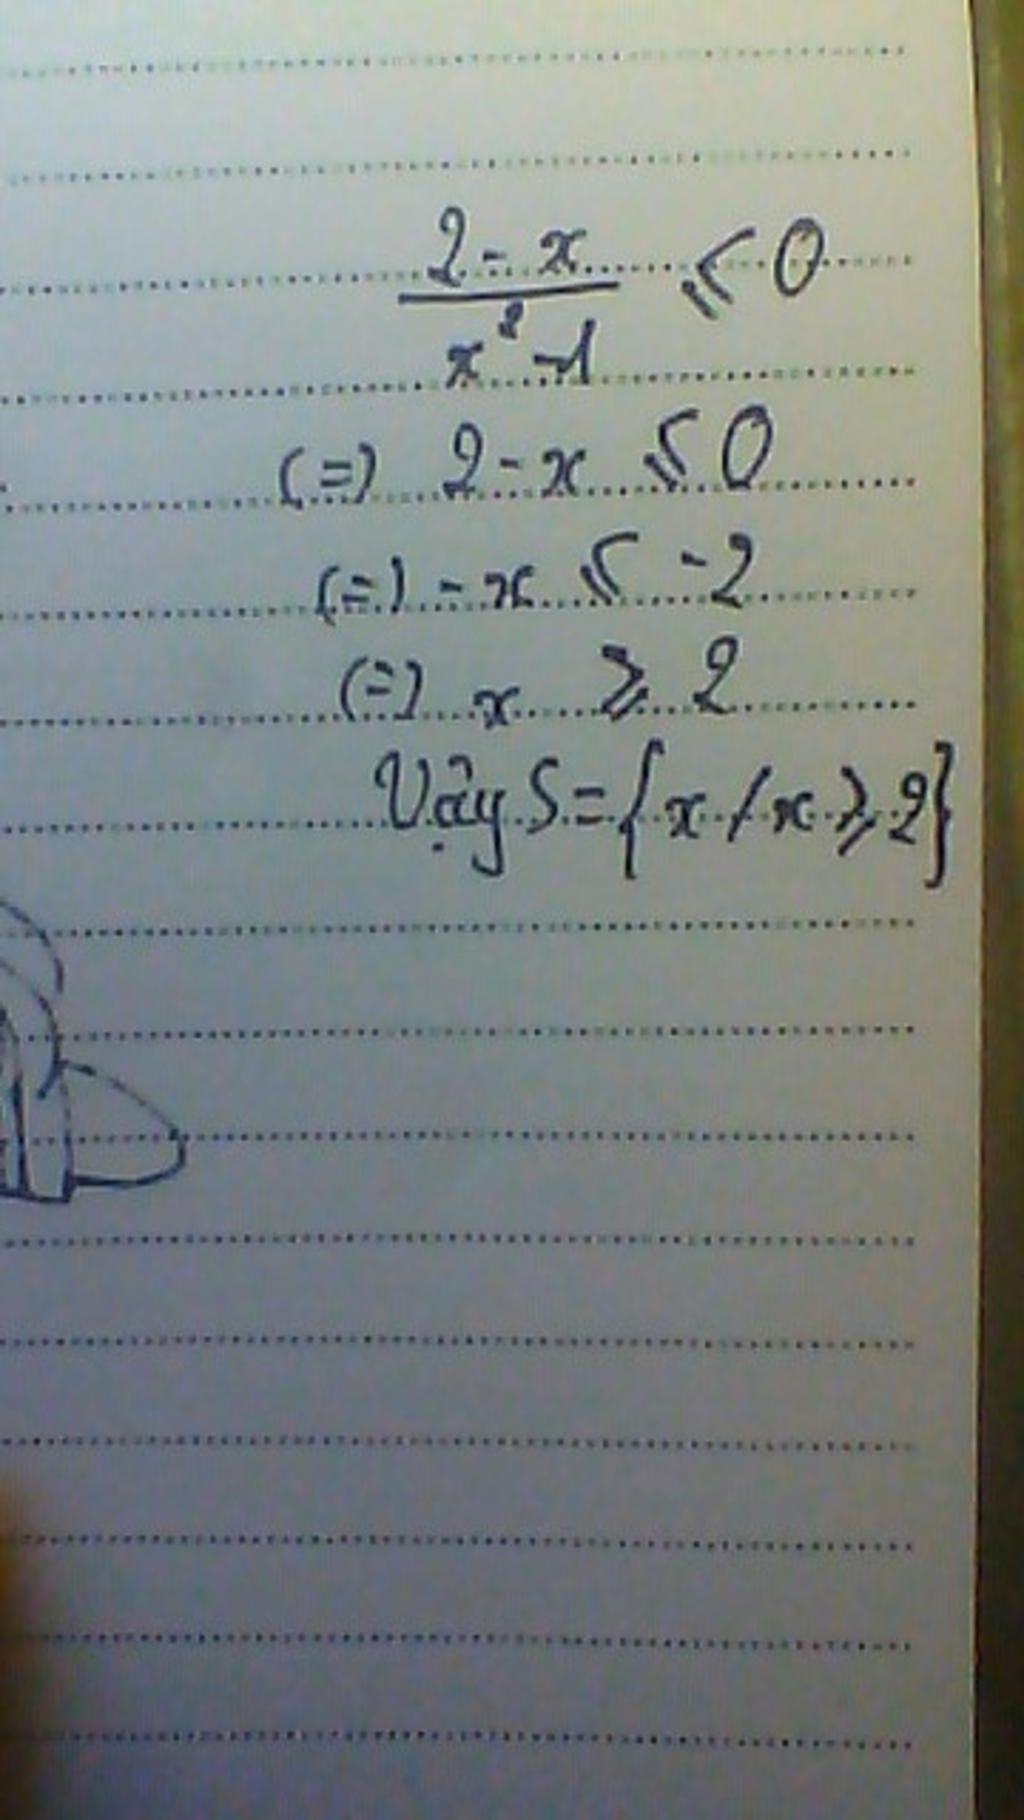 2 - x / x² - 1 ⩽ 0
(=) 2 - x ⩽ 0
(=) - x ⩽ - 2
(=) x ⩾ 2
Vậy S = {x / x ⩾ 2}